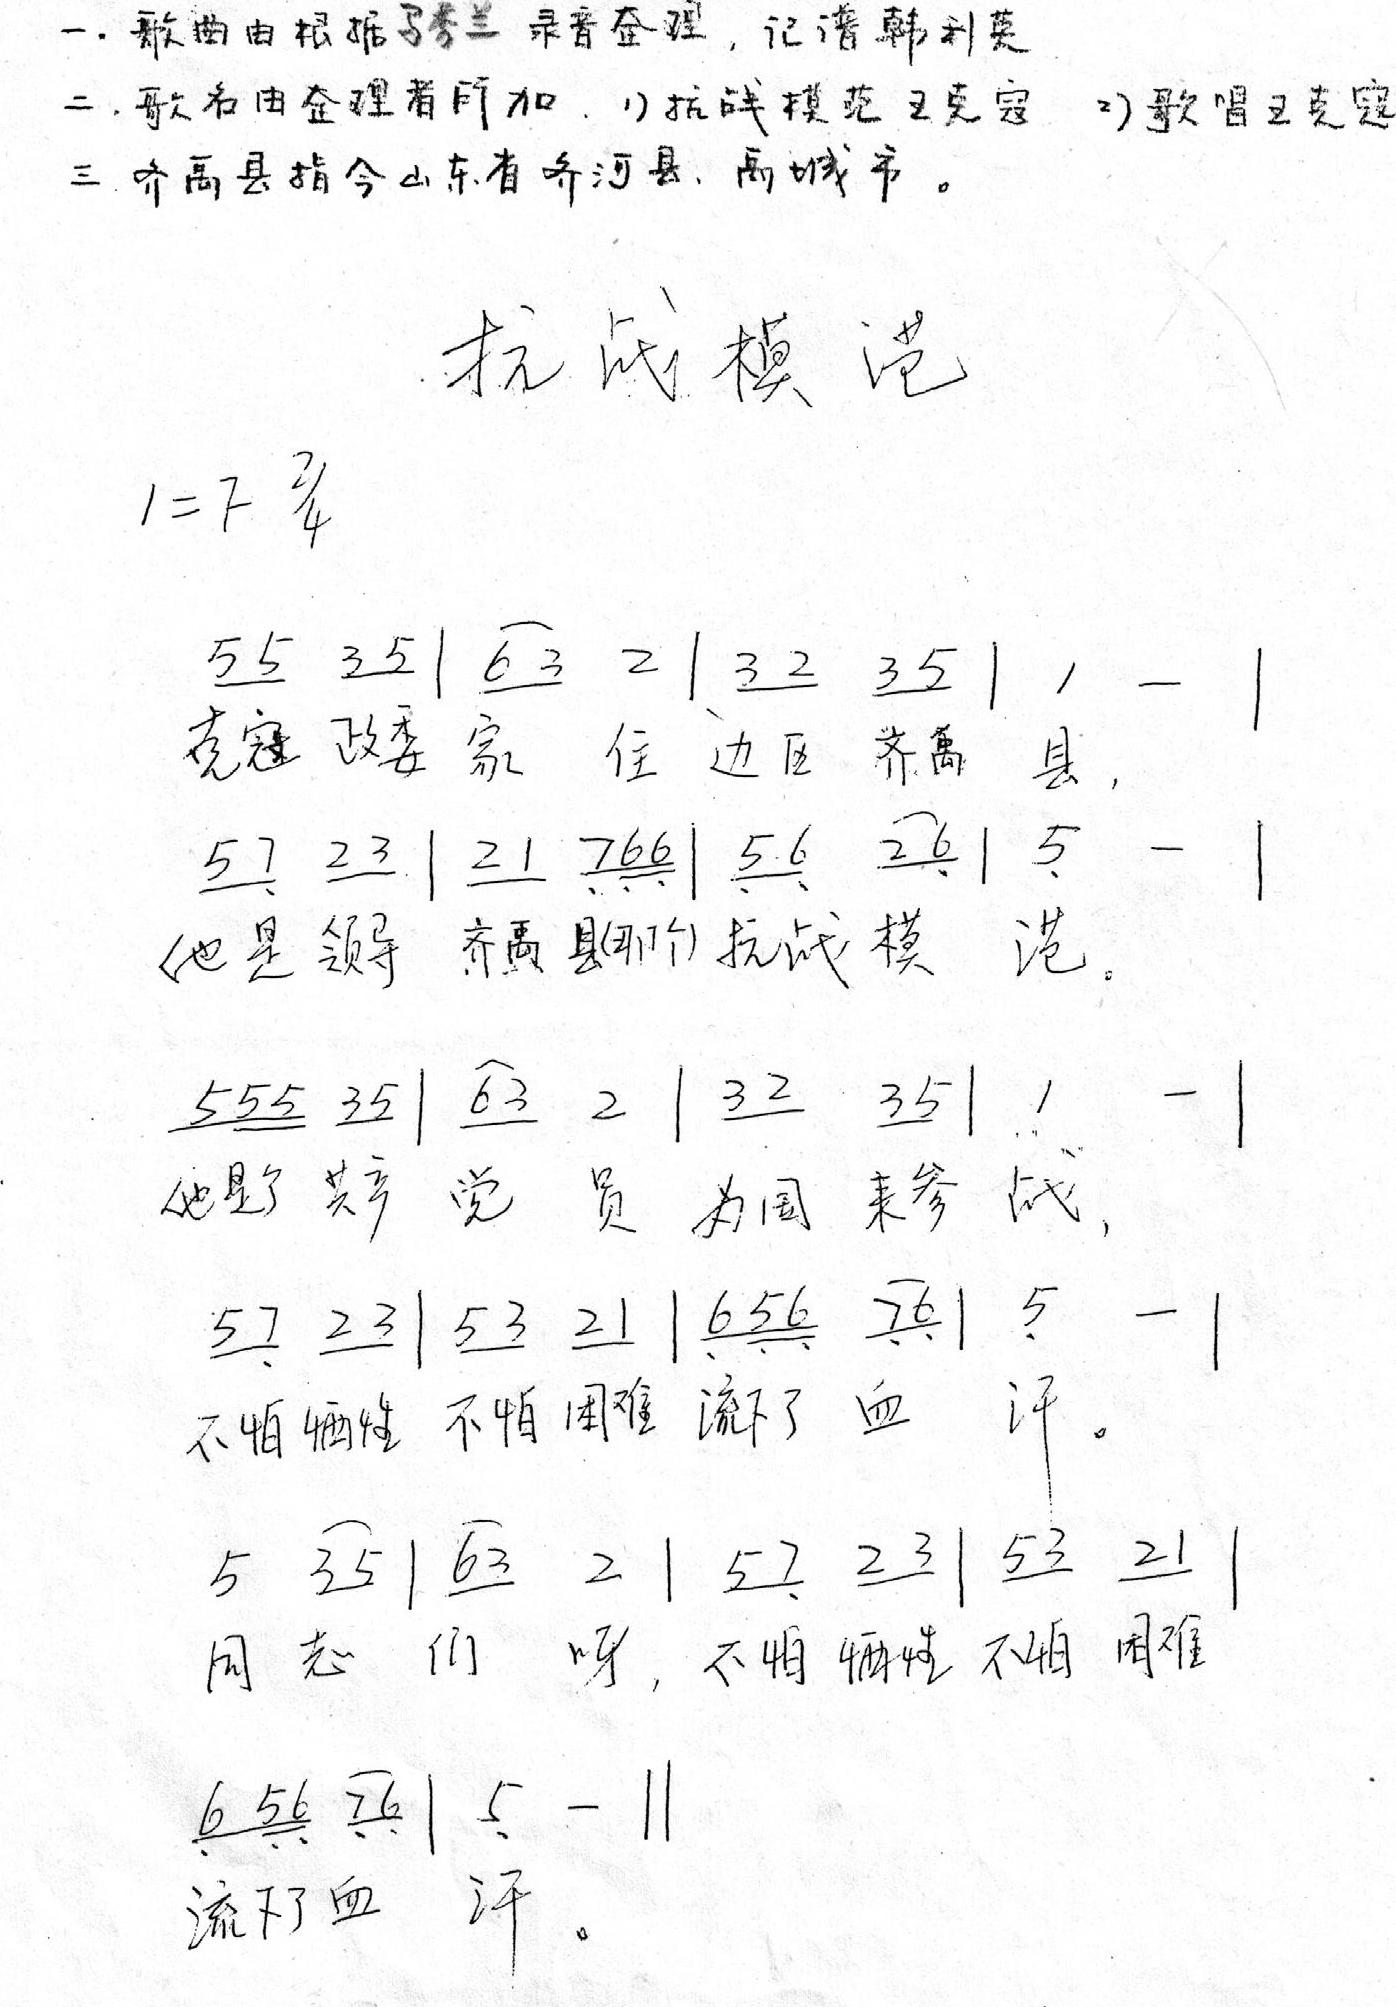 一.歌曲由根据马秀兰录音整理,记谱韩利英
二.歌名由整理者所加.1)抗战模范王克寇 2)歌唱王克寇
三.齐禹县指今山东省齐河县、禹城市。
抗战模范
1=F 2/4
55 35 | 63 2 | 32 35 | 1 — |
克寇 政委 家 住 边区 齐禹 县,
57 23 | 21 766 | 56 26 | 5 — |
他是 领导 齐禹 县(那个) 抗战 模 范。
555 35 | 63 2 | 32 35 | 1 — |
他是了 共产 党 员 为国 来参 战,
57 23 | 53 21 | 656 76 | 5 — |
不怕 牺牲 不怕 困难 流下了 血 汗。
5 35 | 63 2 | 57 23 | 53 21 |
同 志 们 呀, 不怕 牺牲 不怕 困难
656 76 | 5 — ||
流下了 血 汗。